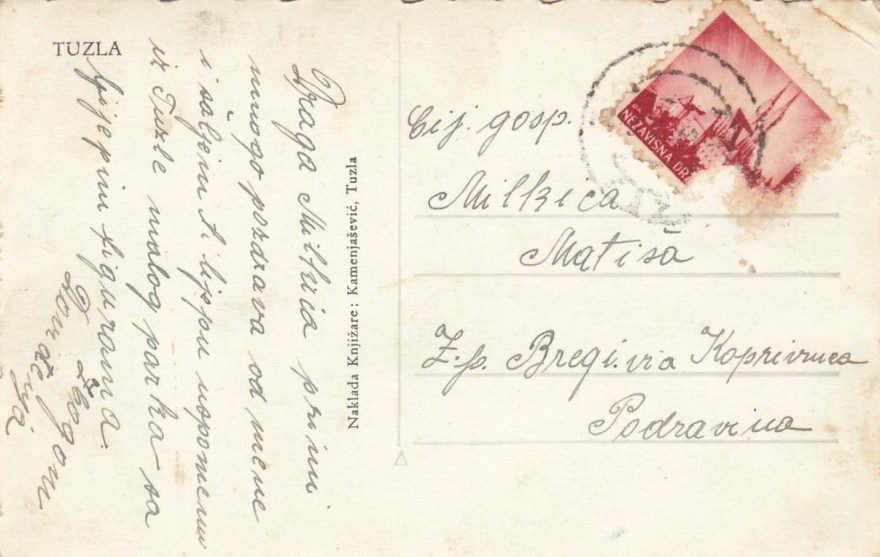 TUZLA
Draga Milkica primi
mnogo pozdrava od mene
i saljem ti lijepu uspomenu
iz Tuzle malog parka sa
lijepim figurama.
Zbogom
Naklada Knjižare: Kamenjašević, Tuzla
NEZAVISNA DR
Cij. gosp.
Milkica
Matiša
Z.p. Bregi. via Koprivnica
Podravina